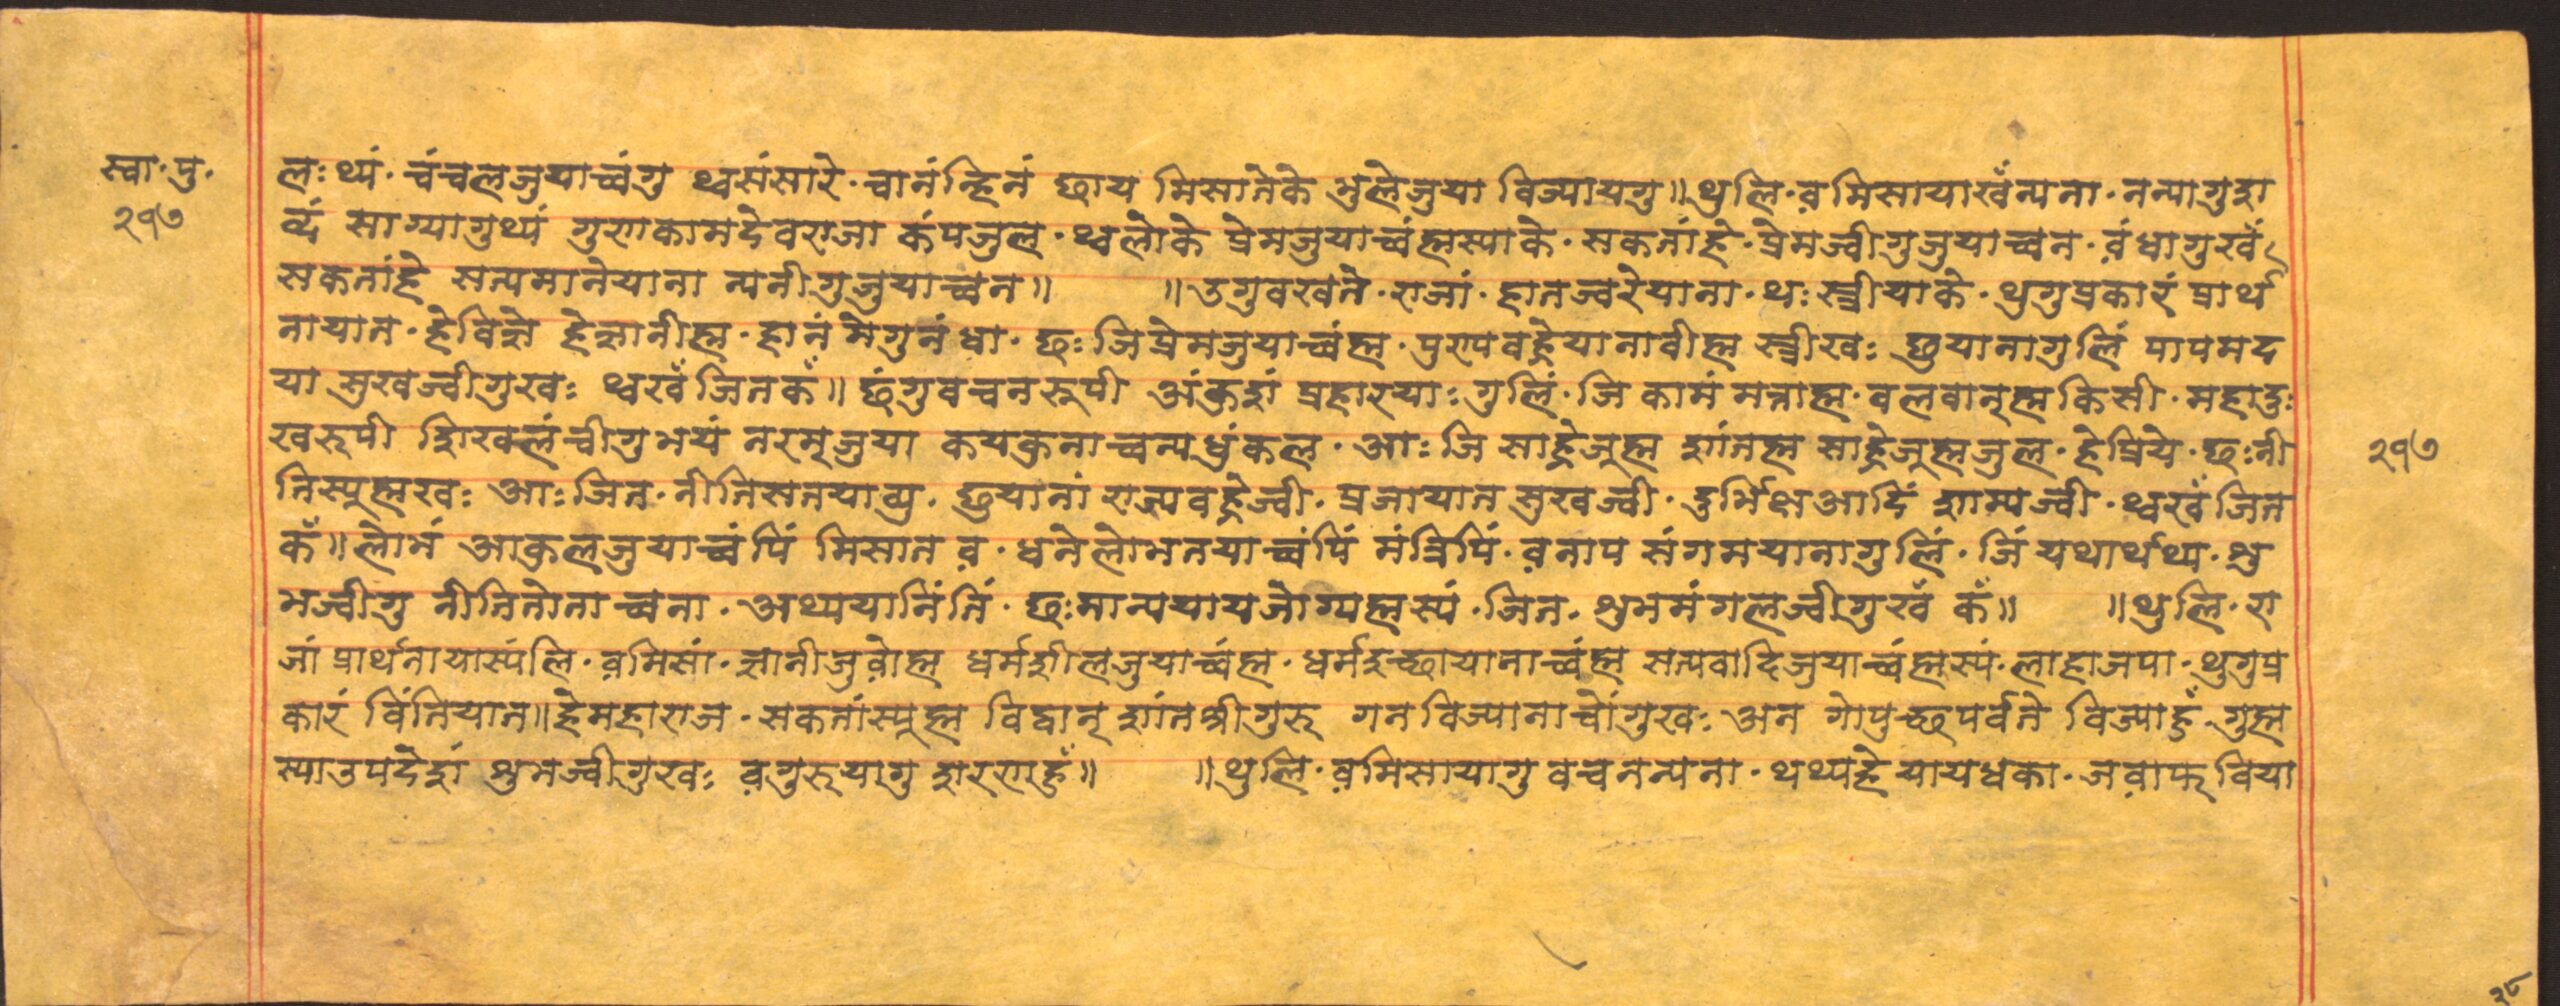 स्वा·पु·
२१७
लःथ्यं·चंचलजुयाच्वंगु थ्वसंसारे·च्वानंन्हिनं छाय मिसातेके भुलेजुया विज्यायगु॥थुलि·व़मिसायाखँन्यना·नन्यागुझा
व्यं साग्यागुथ्यं गुराकामदेवराजा कंपजुल·थ्वलोके प्रेमजुयाच्वंह्मस्याके·सकतांहे·प्रेमज्वीगुजुयाच्वन·व़ंधागुखँ
सकतांहे सत्यमानेयाना न्यनीगुजुयाच्वन॥ ॥उगुवखते·राजां·हातज्वरेयाना·थःस्त्रीयाके·थुगुप्रकारं प्रार्थ
नायात·हेविज्ञे हेज्ञानीह्म·हानं मेगुनंधा·छःजिप्रेमजुयाच्वंह्म·पुरापवहेयानावीह्म स्त्रीखः छुयानागुलिं पापमद
या सुखज्वीगुखः थ्वखँजितकँ॥छंगुवचनरूपी अंकुशं प्रहारयाःगुलिं·जि कामं मन्नाह्म·बलवान्ह्मकिसी·महादुः
खरूपी शिखलंच्वीगुभयं नरम्जुया कयकुनाच्वन्यधुंकल·आःजि साहेजूह्म शांतह्म साहेजूह्मजुल·हेप्रिये·छःनी
तिस्यूह्मखः आःजित·नीतिसतयाव्यु·छुयानां राज्यवहेज्वी·प्रजायात सुखज्वी·दुर्भिक्षआदिं शाम्यज्वी·थ्वखँजित
कँ॥लोभं आकुलजुयाच्वंपिं मिसात व़·धनेलोभतयाच्वंपिं मंत्रिपिं·व़नाप संगमयानागुलिं·जिं यथार्थथ्य·शु
भज्वीगु नीतितोताच्वना·अथ्ययानिंतिं·छःमान्ययायजोग्यह्मस्यं·जित·शुभमंगलज्वीगुखँ कँ॥ ॥थुलि·रा
जां प्रार्थनायास्यंलि·व़मिसां·ज्ञानीजुव़ोह्म धर्मशीलजुयाच्वंह्म·धर्मइच्छायानाच्वंह्म सत्यवादिजुयाच्वंह्मस्यं·लाहाजपा·थुगुप्र
कारं विंतियात॥हेमहाराज·सकतांस्यूह्म विद्वान् शांतश्रीगुरू गन विज्यानाचोंगुखः अन गोपुच्छपर्वते विज्याहुँ·गुह्म
स्याउपदेशं शुभज्वीगुखः व़गुरूयागु शरणहुँ॥ ॥थुलि·व़मिसायागु वचनन्यना·थथ्यहे यायधका·जव़ाफ् विया
२१७
२८